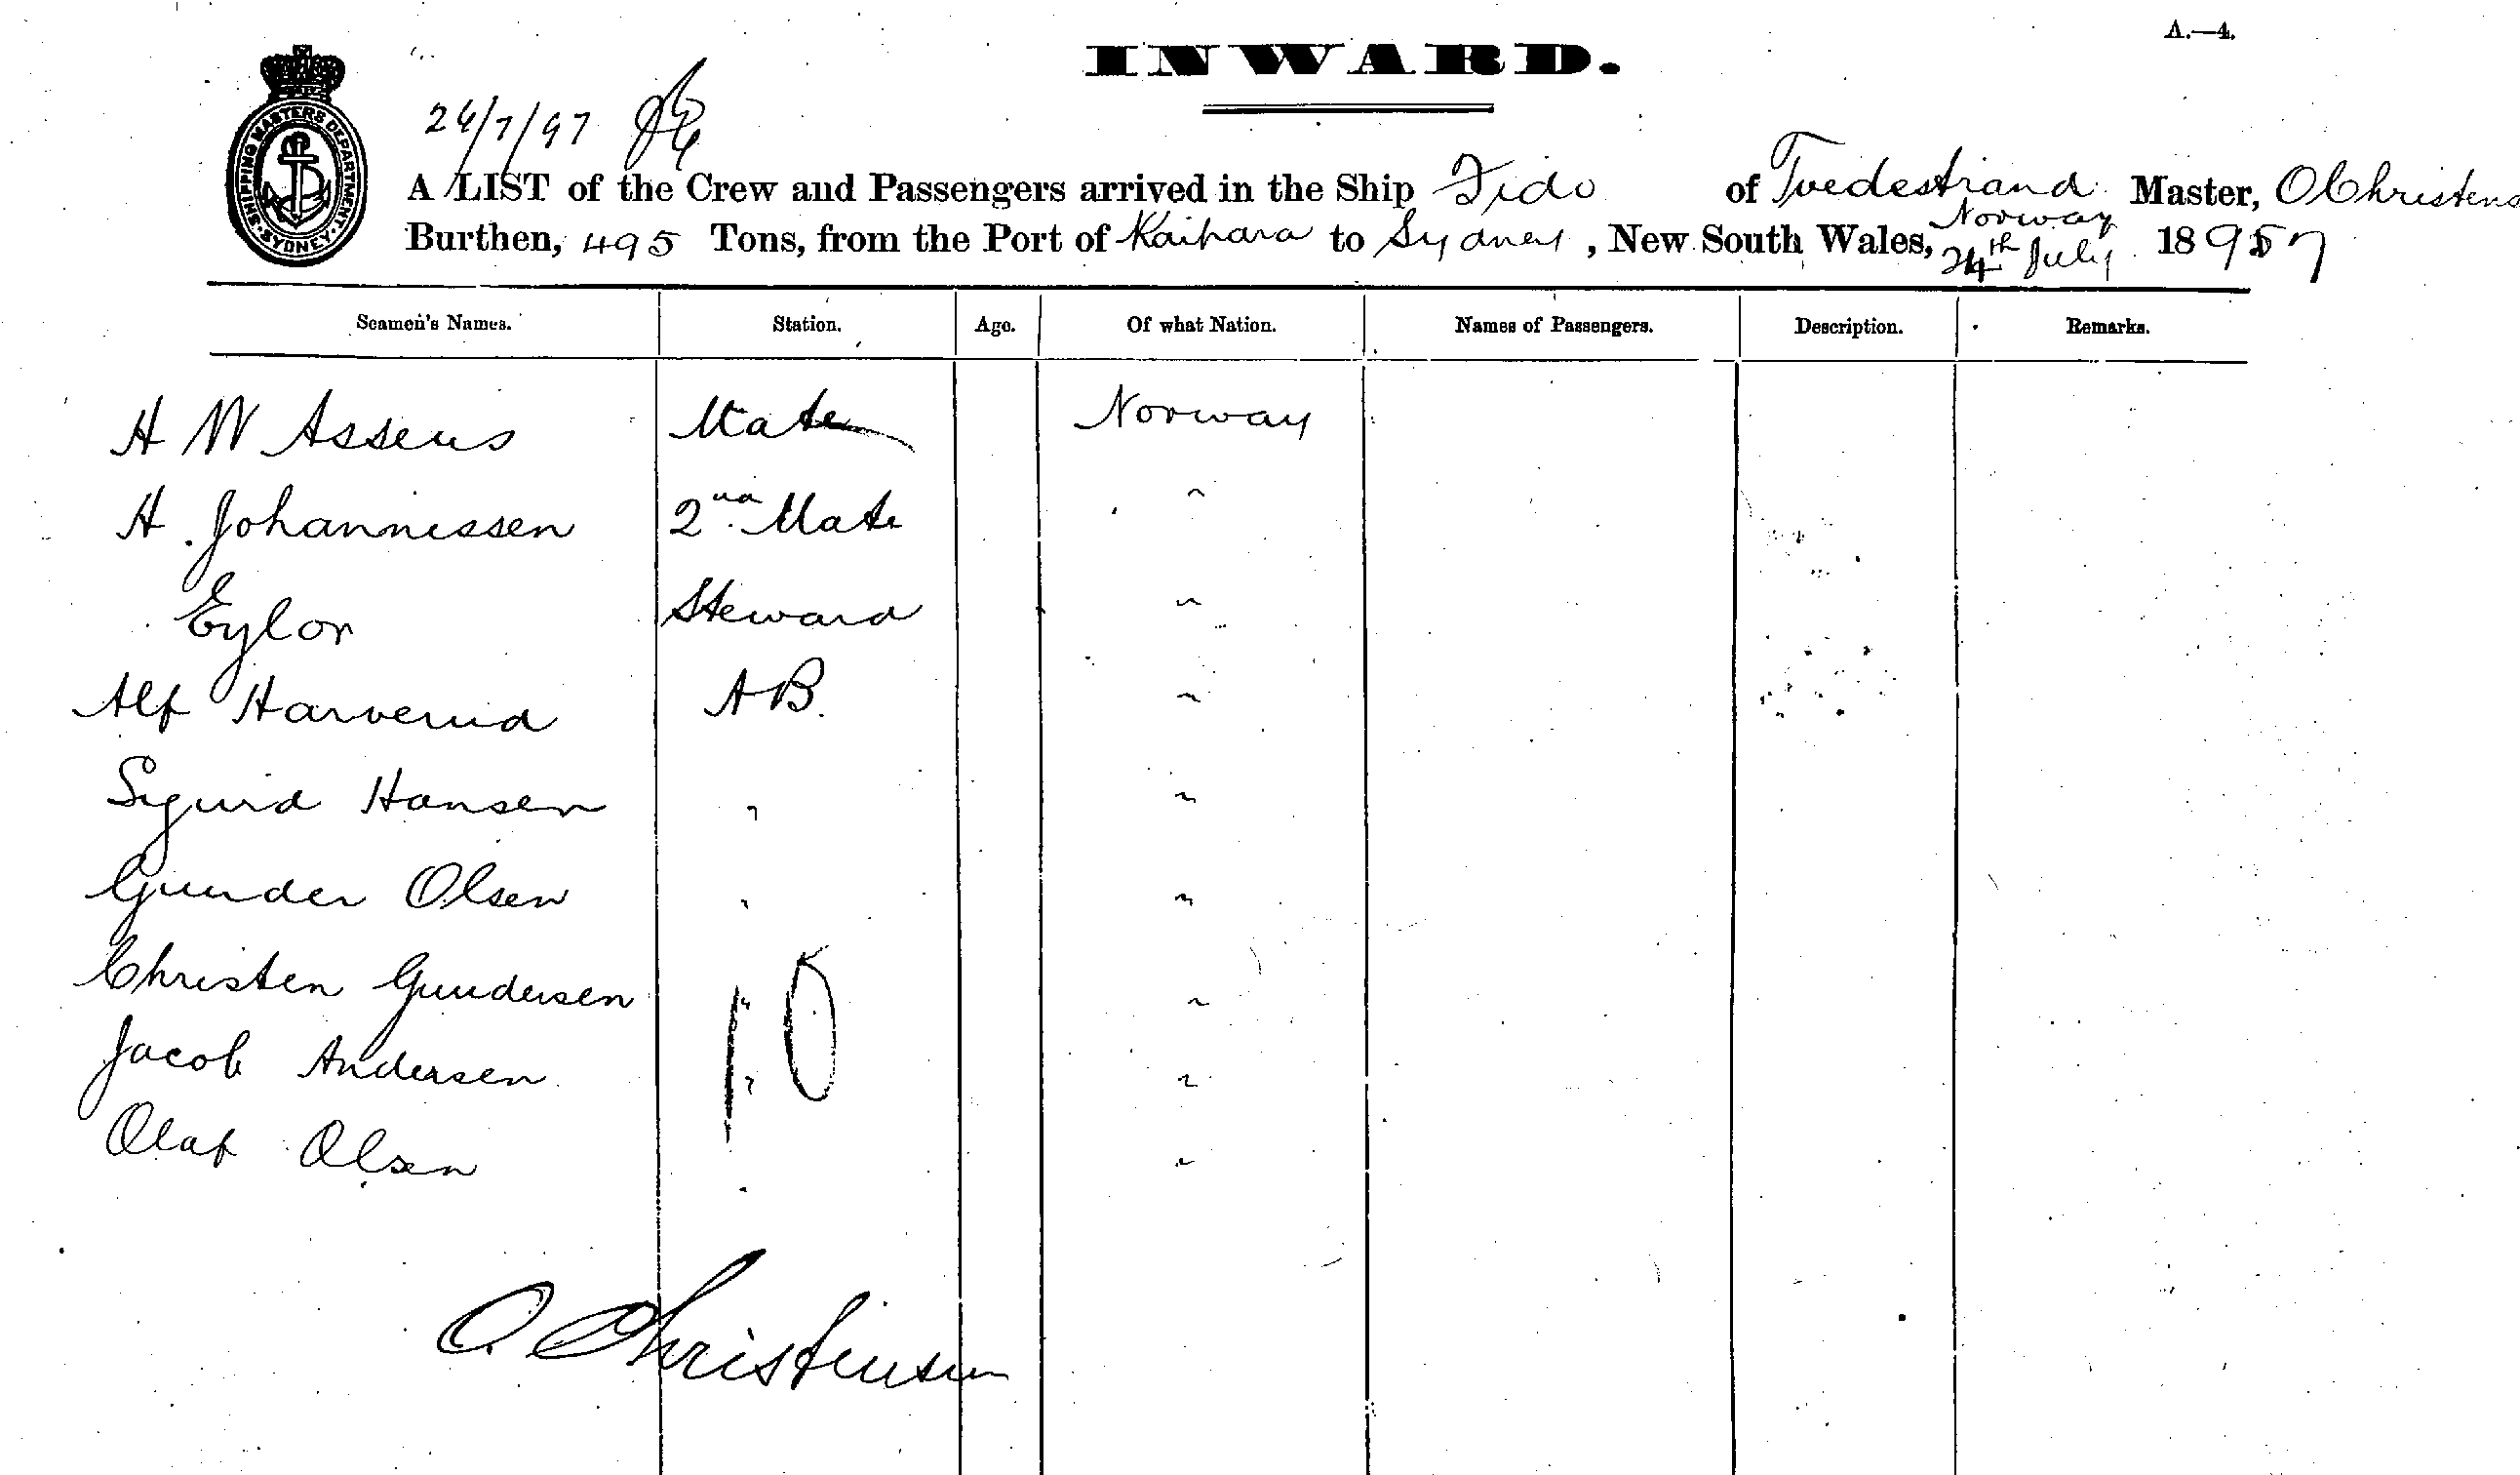 A.—4.
INWARD.
SHIPPING MASTERS DEPARTMENT SYDNEY
24/7/97
A LIST of the Crew and Passengers arrived in the Ship Fido of Tvedestrand Norway Master, O Christens
Burthen, 495 Tons, from the Port of Kaipara to Sydney, New South Wales, 24th July 1897
Seamen's Names. Station. Age. Of what Nation. Names of Passengers. Description. Remarks.
H W Assens Mate Norway
H. Johannessen 2nd Mate "
Eylor Steward "
Alf Harverud AB. "
Sigurd Hansen " "
Gunder Olsen " "
Christen Gundersen " "
Jacob Andersen " "
Olaf Olsen " "
10
O. Christensen